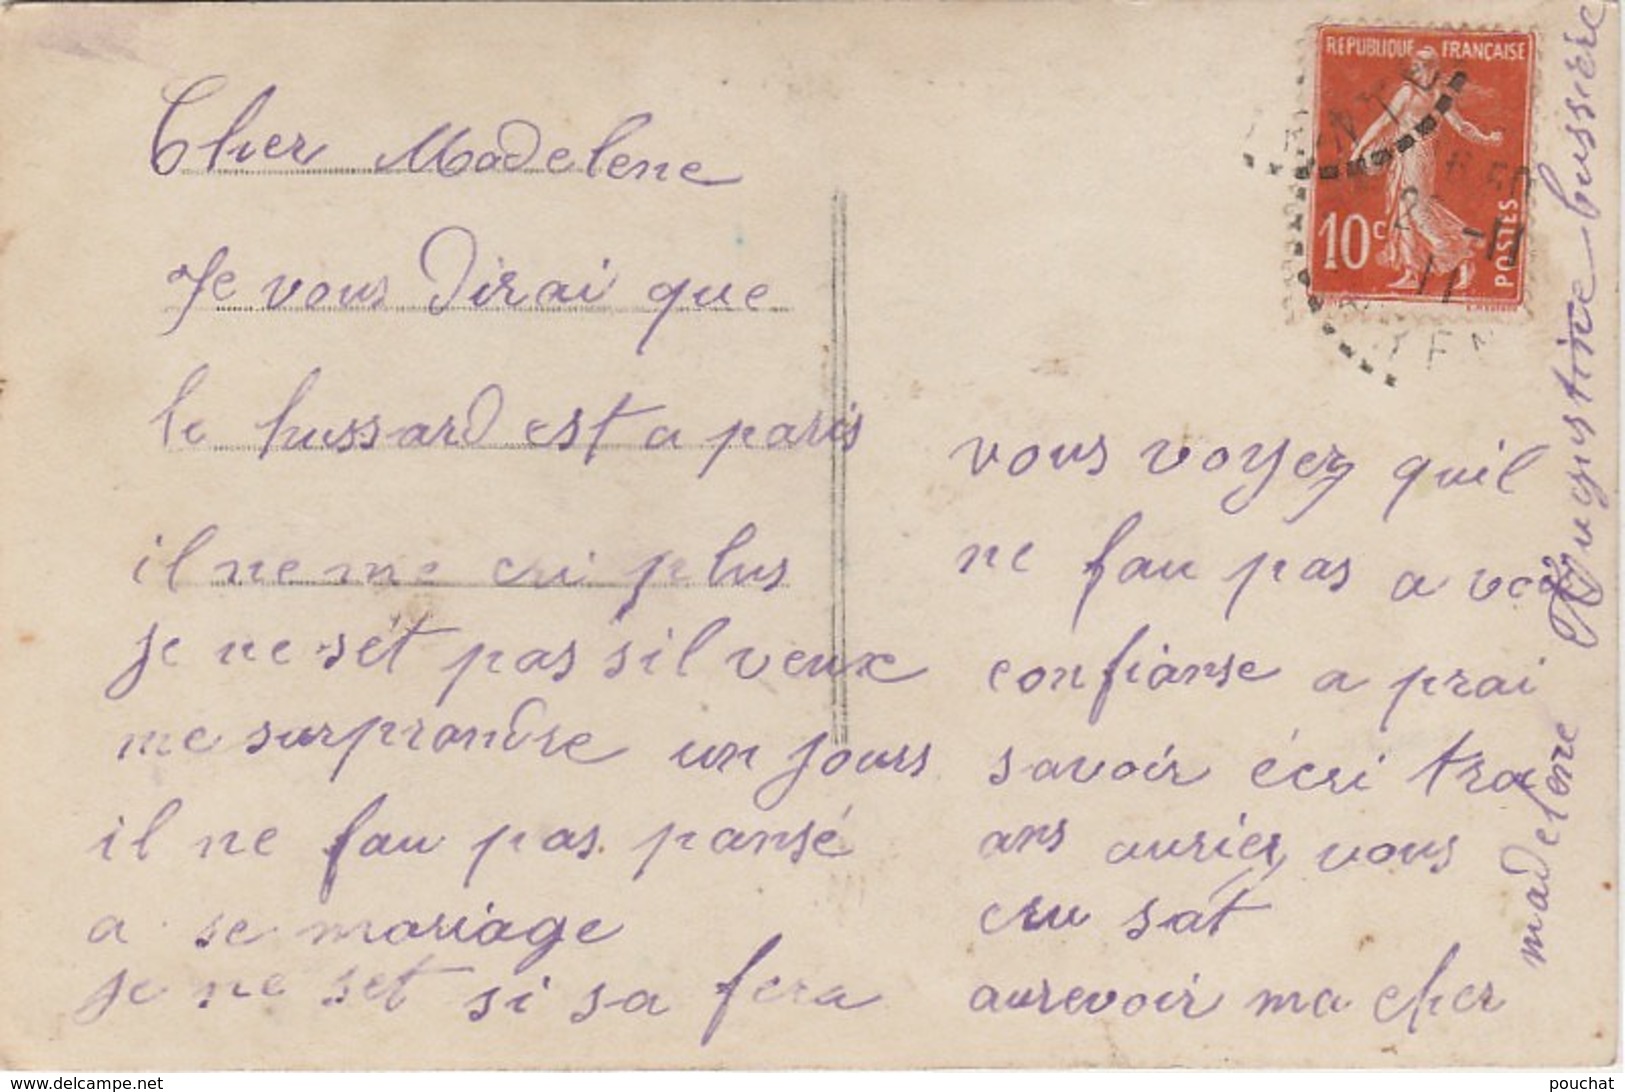 Cher Madelene
Je vous dirai que
le hussard est a paris
il ne me cri plus
je ne sét pas sil veux
me surprandre un jours
il ne fau pas pansé
a se mariage
je ne set si sa fera
vous voyez quil
ne fau pas a voir
confianse a prai
savoir écri troi
ans auriez vous
cru sat
aurevoir ma cher
madelene Augustine bussière
REPUBLIQUE FRANÇAISE
10c POSTES
-11
www.delcampe.net
pouchat